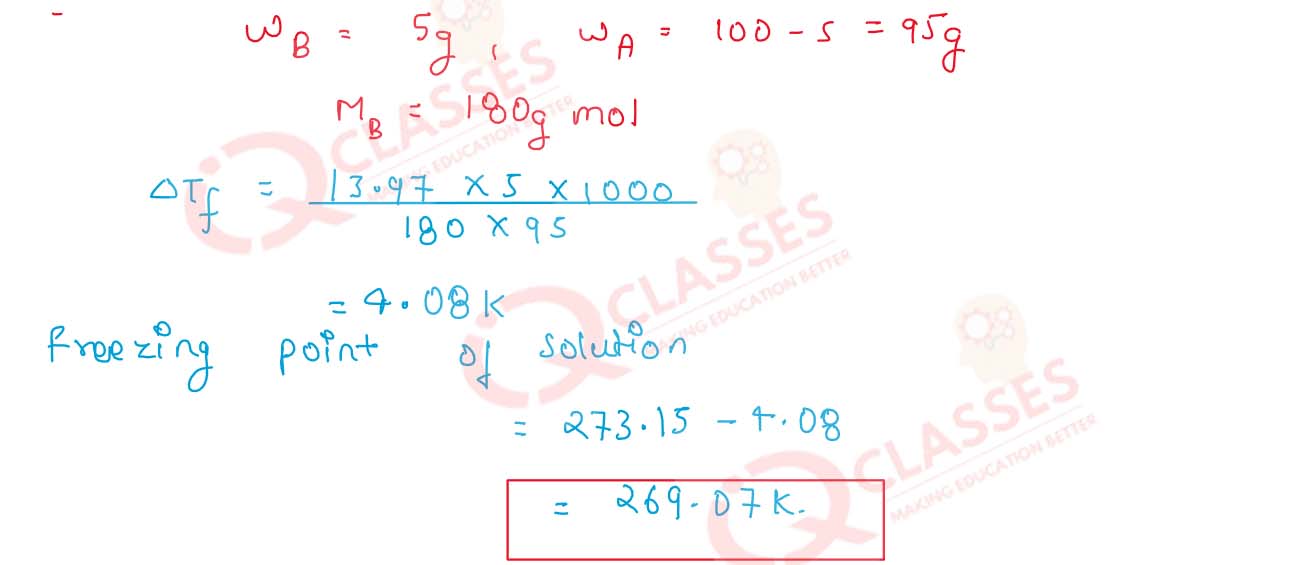 ω_B = 5g, ω_A = 100 - 5 = 95g
M_B = 180g mol
ΔT_f = 13.97 × 5 × 1000
180 × 95
= 4.08K
freezing point of solution
= 273.15 - 4.08
= 269.07K.
IQ CLASSES
MAKING EDUCATION BETTER
IQ CLASSES
MAKING EDUCATION BETTER
IQ CLASSES
MAKING EDUCATION BETTER